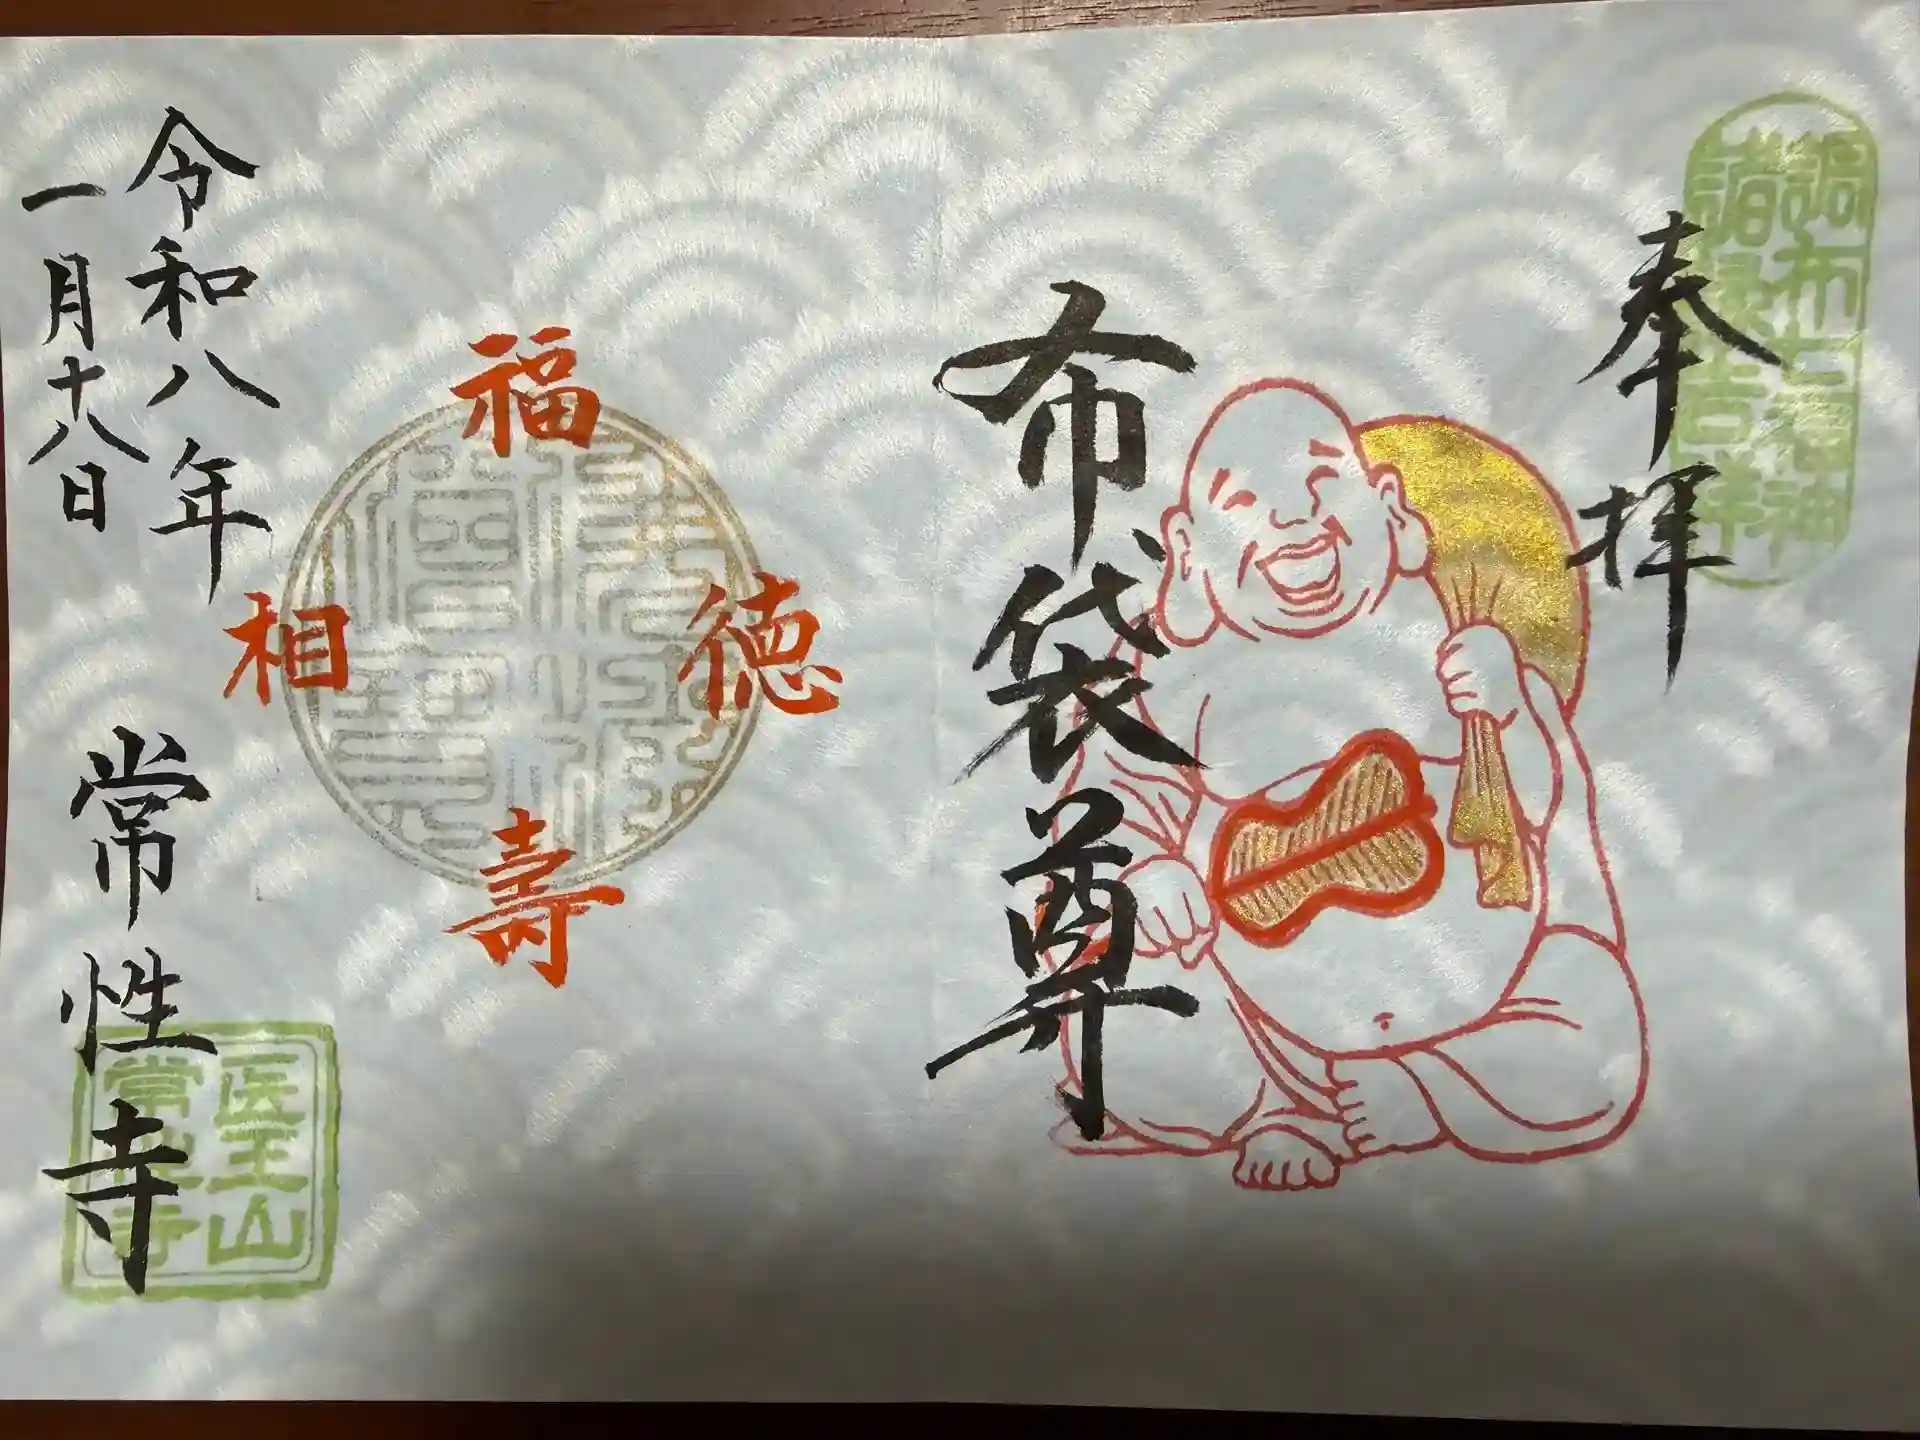 調布七福神
諸縁吉祥
奉拝
布袋尊
福
徳
相
壽
令和八年
一月十八日
常性寺
医王山
常性寺